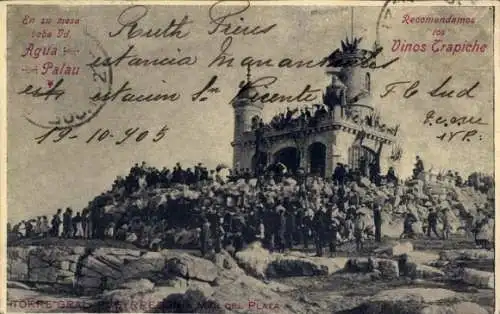 En su mesa
tome Vd.
Agua
Palau
Recomendamos
los
Vinos Trapiche
Ruth
estancia Manantiales
estacion Sn Vicente F C Sud
19-10-905
TORRE GRAL. PUEYRREDON MAR DEL PLATA